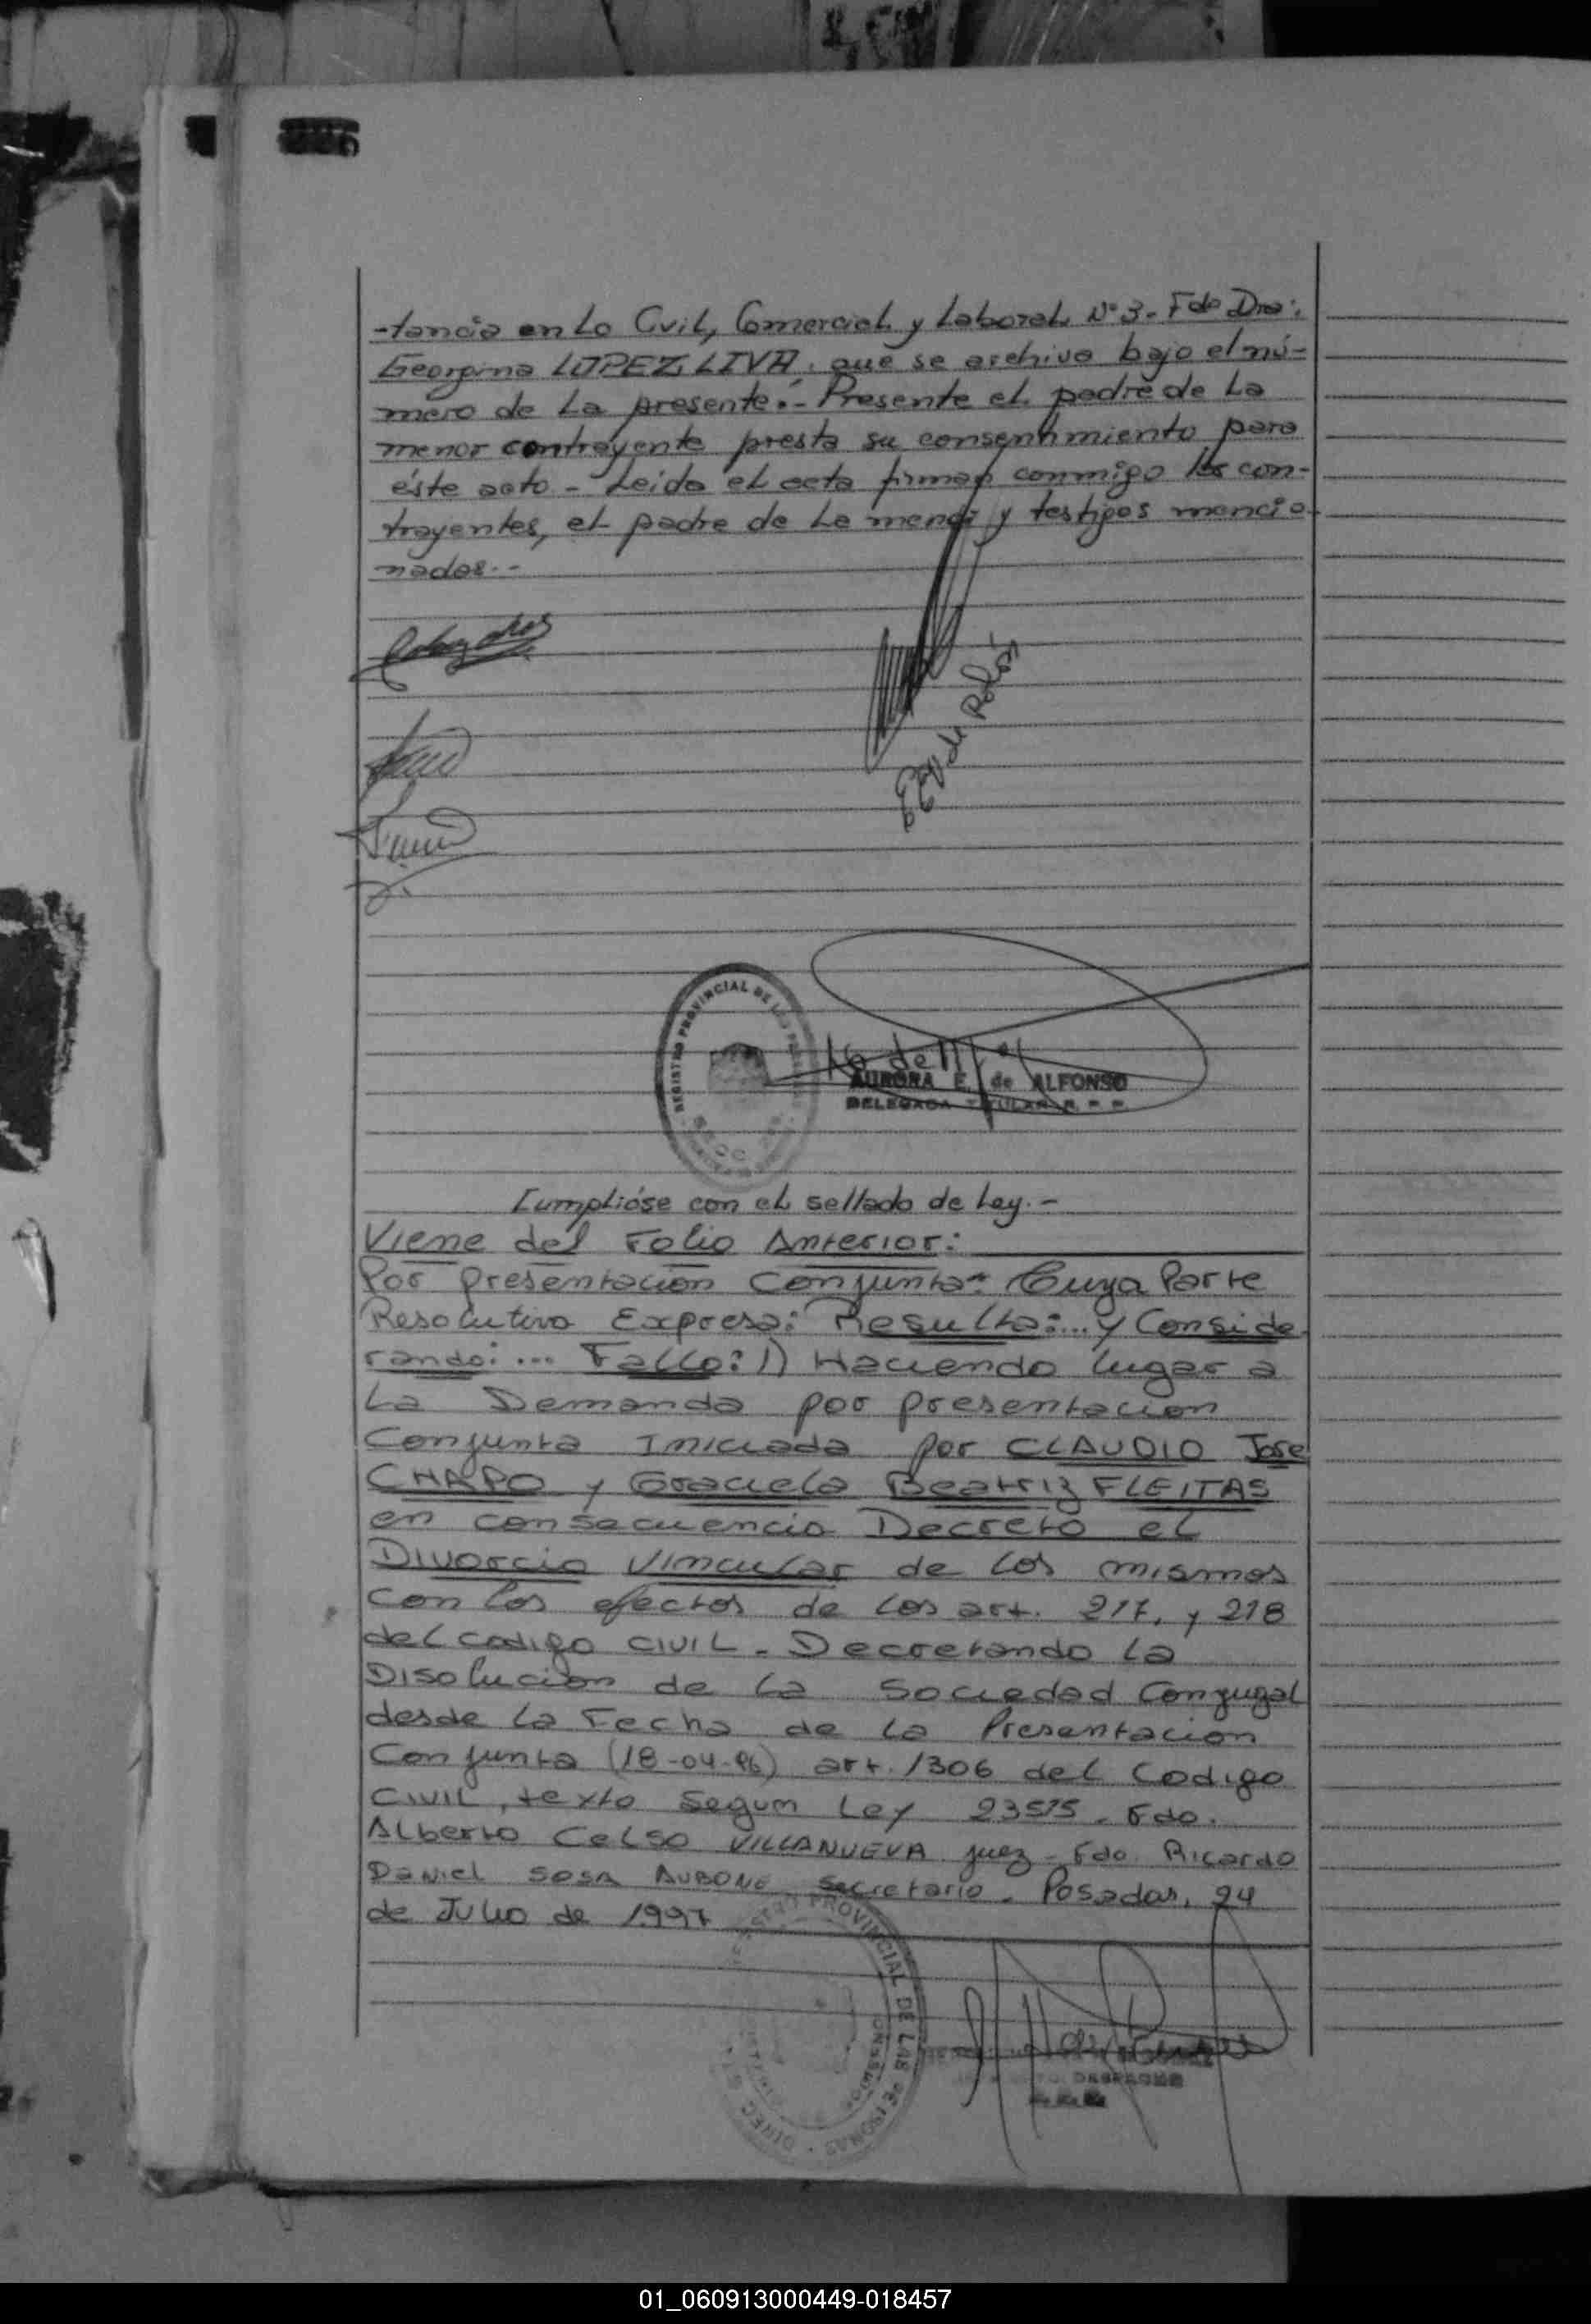 -tancia en Lo Civil, Comercial y Laboral Nº 3. Fdo Dra:
Georgina LOPEZ LIVA. que se archiva bajo el nú-
mero de La presente.- Presente el padre de La
menor contrayente presta su consentimiento para
éste acto - Leida el acta firman conmigo los con-
trayentes, el padre de La menor y testigos mencio-
nados.-
REGISTRO PROVINCIAL DE LAS PERSONAS
AURORA E. de ALFONSO
DELEGADA TITULAR R. P. P.
Cumplióse con el sellado de Ley.-
Viene del Folio Anterior:
Por presentacion Conjunta- Cuya Parte
Resolutiva Expresa: Resulta:... y Conside
rando: ... Fallo: 1) Haciendo lugar a
La Demanda por presentacion
Conjunta Iniciada por CLAUDIO Jose
CHAPO y Graciela Beatriz FLEITAS
en consecuencia Decreto el
Divorcio Vincular de los mismos
con los efectos de los art. 217, y 218
del codigo CIVIL - Decretando la
Disolucion de la Sociedad Conyugal
desde la Fecha de la Presentacion
Conjunta (18-04-96) art. 1306 del Codigo
CIVIL, texto Segun Ley 23515. Fdo.
Alberto Celso VILLANUEVA juez - Fdo. Ricardo
Daniel SOSA AUBONE Secretario. Posadas, 24
de Julio de 1997
REGISTRO PROVINCIAL DE LAS PERSONAS
DESPACHO
01_060913000449-018457